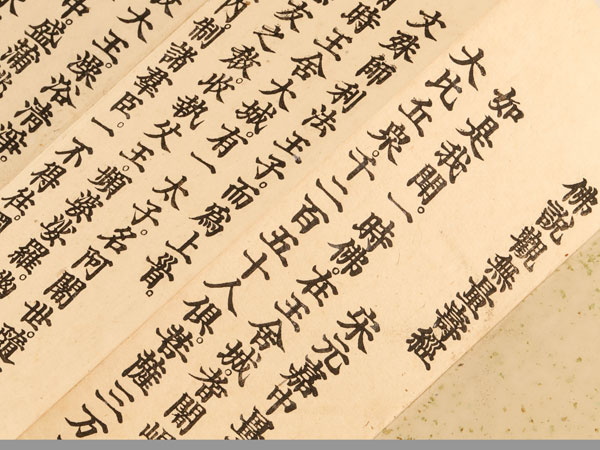 佛說觀無量壽經
宋元嘉中畺
如是我聞。一時佛。在王舍城。耆闍崛
大比丘衆。千二百五十人俱。菩薩三万
文殊師利法王子。而爲上首。
時王舍大城。有一太子。名阿闍世。隨
友之教。收執父王。頻婆娑羅。幽
內制諸羣臣。一不得往。國
大王。澡浴清淨。
中。盛蒲